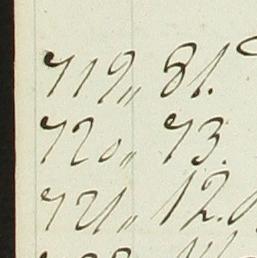 719,, 81.
720,, 73.
721,, 12.